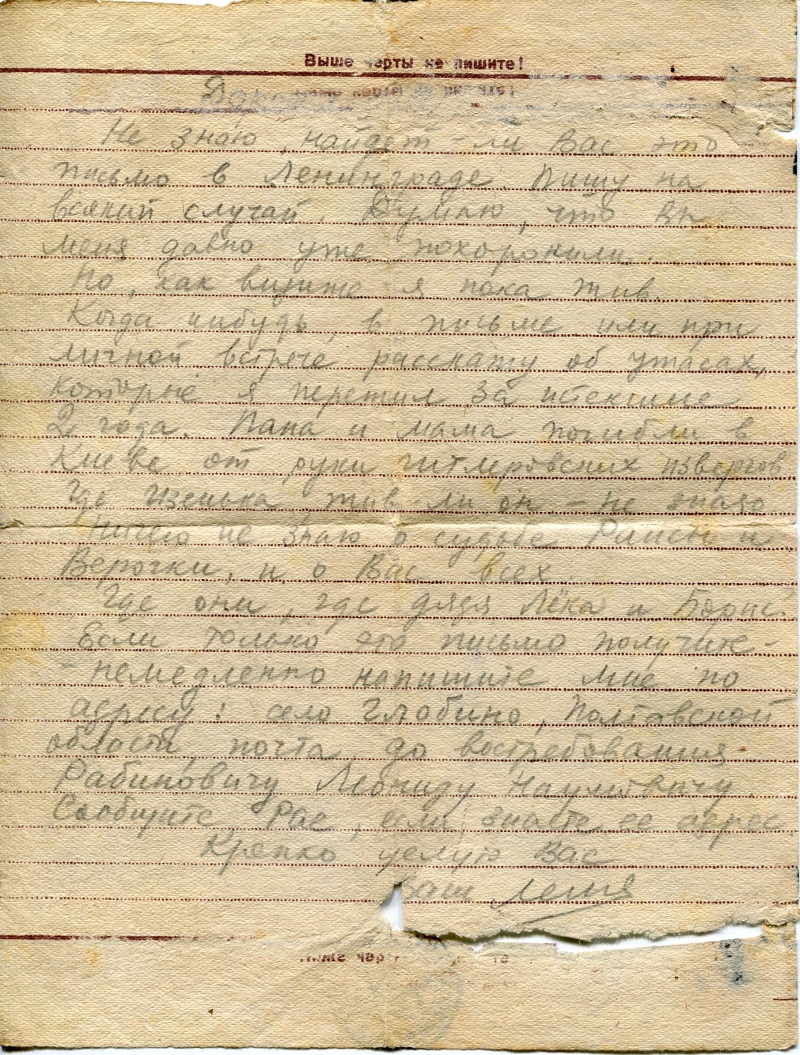 Выше черты не пишите!
Не знаю, найдет ли Вас это
письмо в Ленинграде Пишу на
всякий случай. Думаю, что Вы
меня давно уже похоронили.
Но, как видите я пока жив.
Когда нибудь, в письме или при
личной встрече расскажу об ужасах,
которые я пережил за истекшие
2 года. Папа и мама погибли в
Киеве от руки гитлеровских извергов
Где Изенька, жив-ли он - не знаю
Ничего не знаю о судьбе Раисы и
Верочки, и о Вас всех
Где они, где дядя Лёка и Борис.
Если только это письмо получите -
- немедленно напишите мне по
адресу: село Глобино, Полтавской
области почта до востребования
Рабиновичу Леониду Наумовичу.
Сообщите Рае, если знаете ее адрес
Крепко целую Вас
Ваш Леня